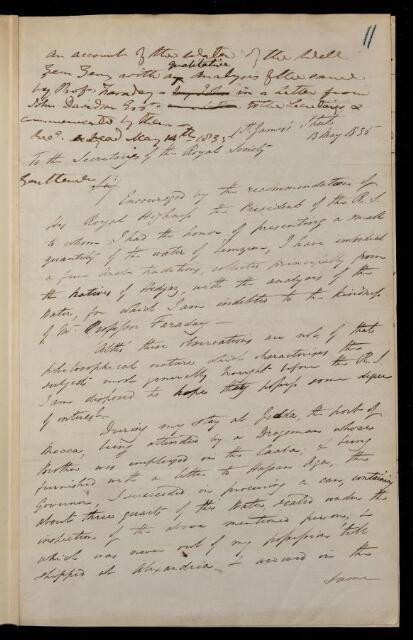 11
An account of the Water of the Well
Zem Zem, with a qualitative Analysis of the same
by Prof. Faraday - in a Letter from
John Davidson Esqr. to the Secretaries &
communicated by them -
Recd. & Read May 14th 1835
St. James's Street
13 May 1835
To the Secretaries of the Royal Society
Gentlemen
Encouraged by the recommendations of
His Royal Highness the President of the R.S.
to whom I had the honor of presenting a small
quantity of the water of Zemzem, I have embodied
a few Arab traditions, collected principally from
the Natives of Hedjaz, with the analysis of the
Water, for which I am indebted to the kindness
of Mr. Professor Faraday -
Altho' these observations are not of that
philosophical nature which characterises the
subjects most generally brought before the R.S.
I am disposed to hope they possess some degree
of interest -
During my stay at Jedda, the port of
Mecca, being attended by a Dragoman whose
Brother was employed in the Caaba; & being
furnished with a letter to Hassein Aga, the
Governor, I succeeded in procuring a can, containing
about three quarts of this Water, sealed under the
inspection of the above mentioned persons, &
which was never out of my possession 'till
shipped at Alexandria, & arrived in the
same